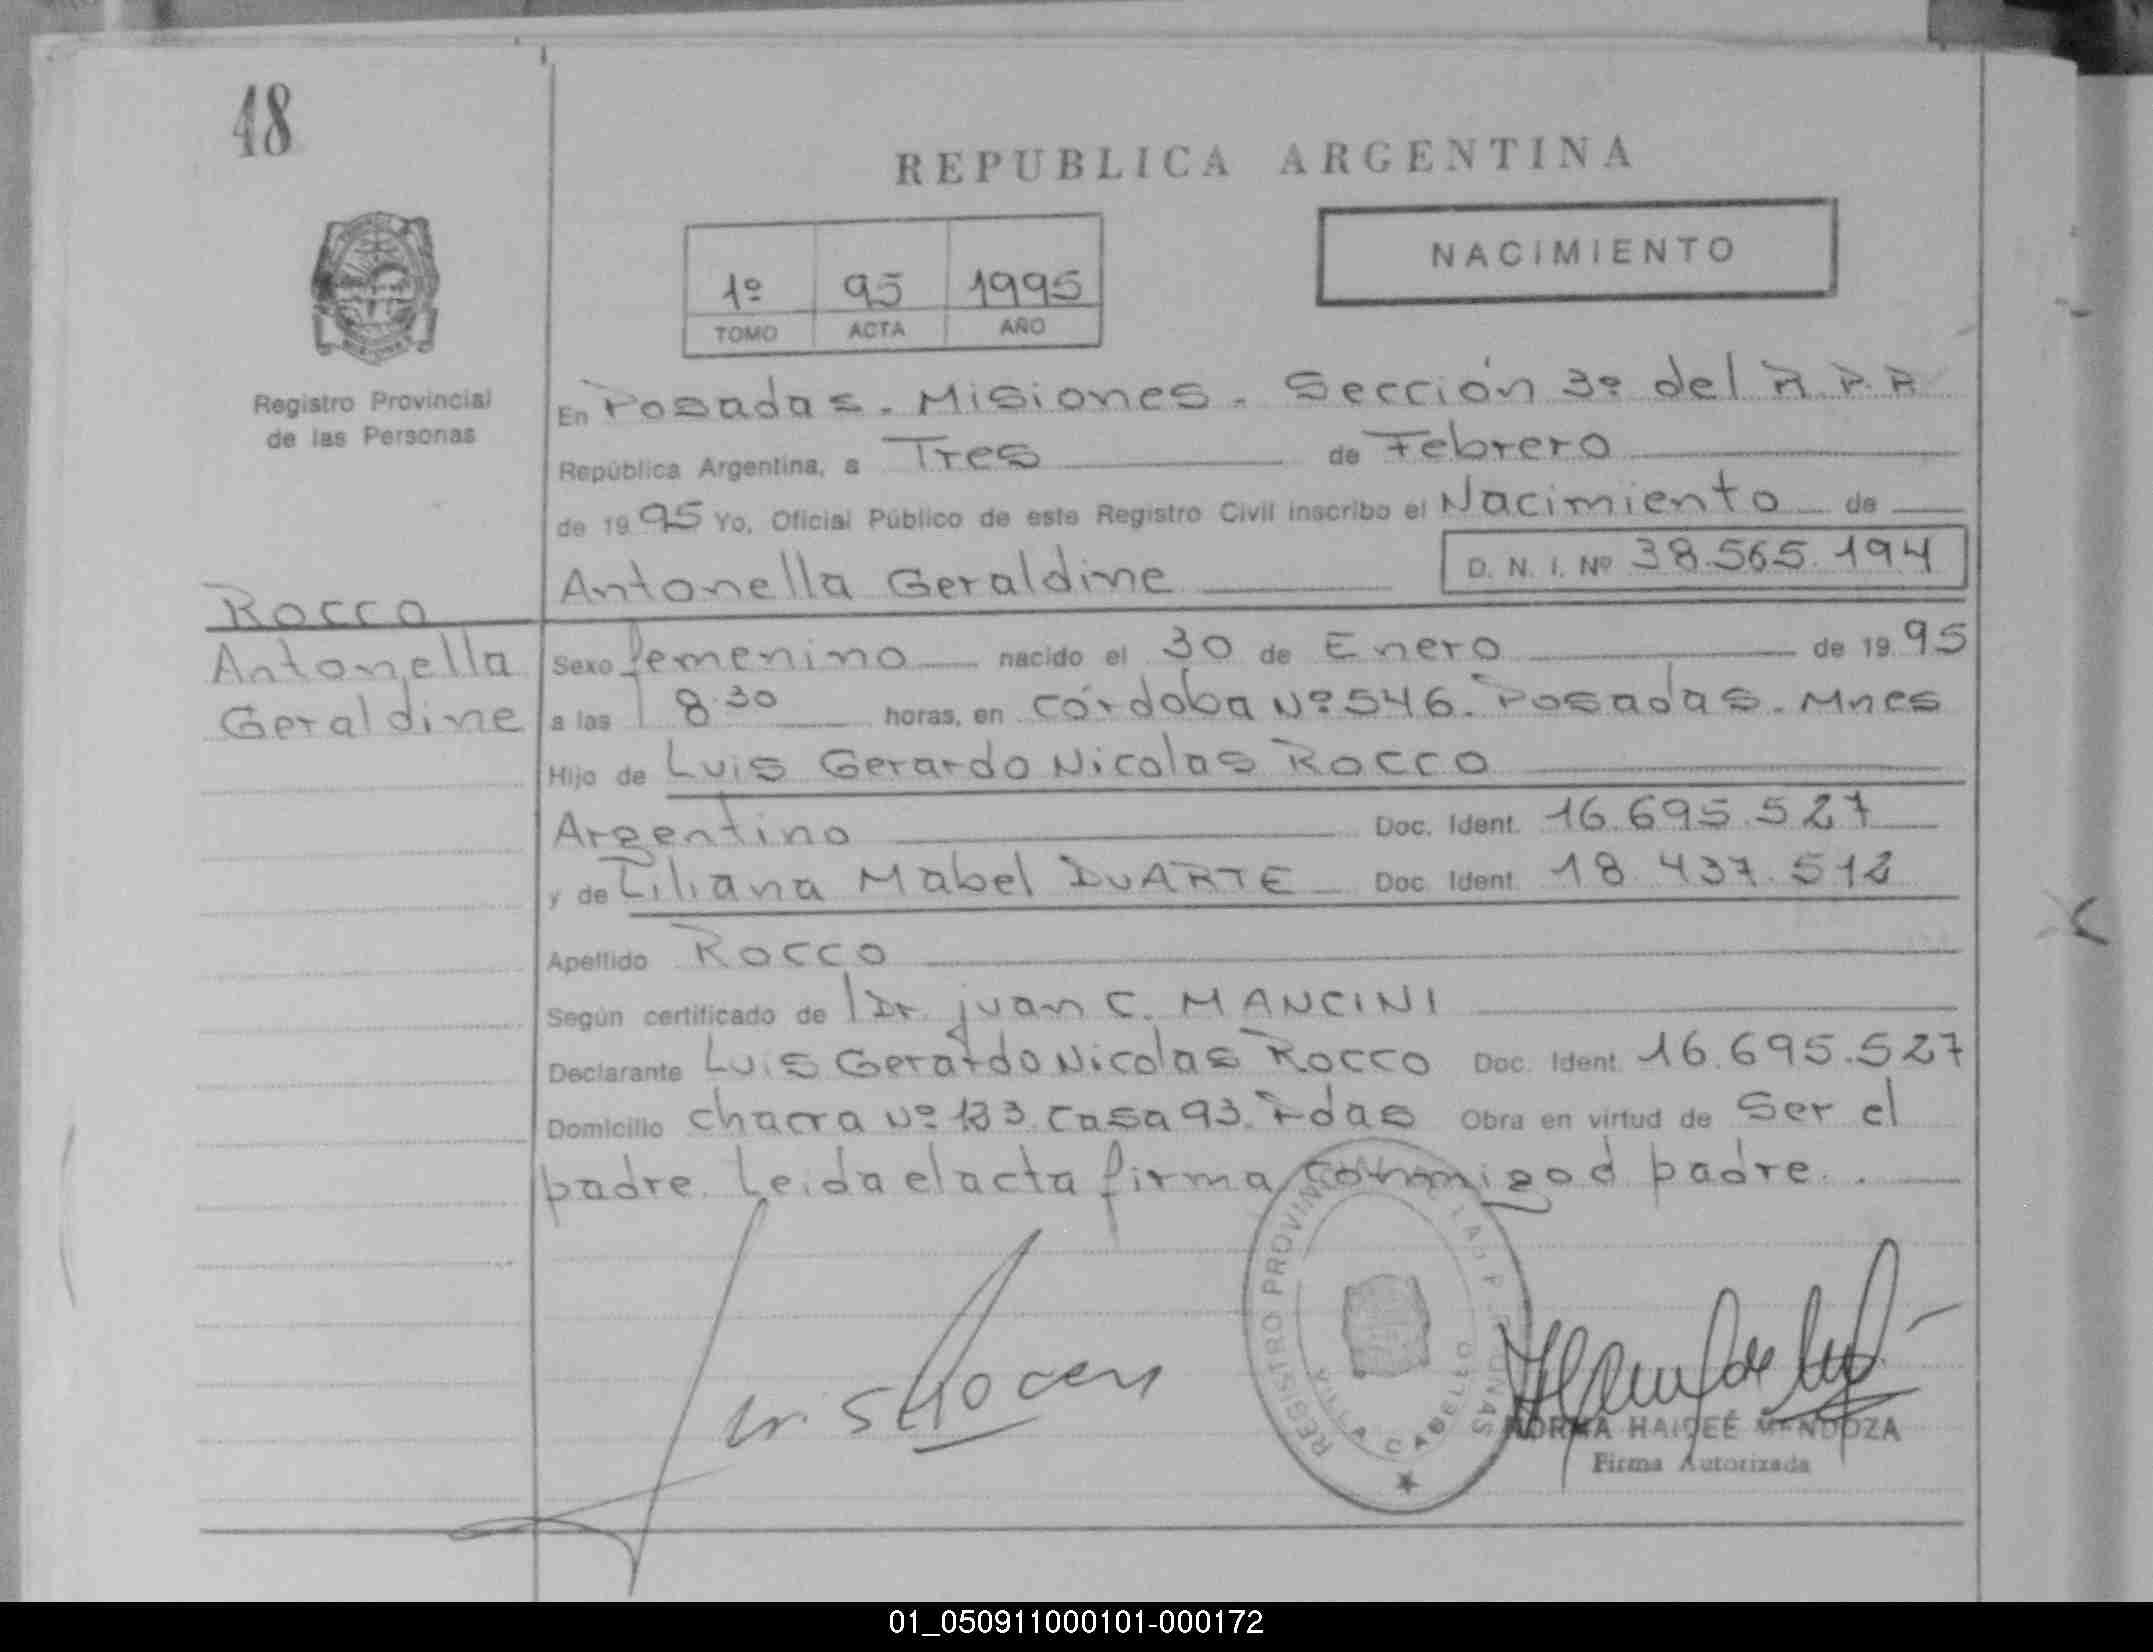 48
REPUBLICA ARGENTINA
NACIMIENTO
1º 95 1995
TOMO ACTA AÑO
Registro Provincial
de las Personas
En Posadas - Misiones - Sección 3º del R.P.P
República Argentina, a Tres de Febrero
de 1995 Yo, Oficial Público de este Registro Civil inscribo el Nacimiento de
Antonella Geraldine D. N. I. Nº 38.565.194
Rocco
Antonella
Geraldine
Sexo femenino nacido el 30 de Enero de 1995
a las 8.30 horas, en Córdoba Nº 546. Posadas. Mnes
Hijo de Luis Gerardo Nicolas Rocco
Argentino Doc. Ident. 16.695.527
y de Liliana Mabel DUARTE Doc. Ident. 18.437.512
Apellido Rocco
Según certificado de Dr. Juan C. MANCINI
Declarante Luis Gerardo Nicolas Rocco Doc. Ident. 16.695.527
Domicilio chacra Nº 133. Casa 93. Pdas Obra en virtud de Ser el
padre. Leida el acta firma conmigo el padre.
REGISTRO PROVINCIAL LAS PERSONAS
VILLA CABELLO
NORMA HAIDEÉ MENDOZA
Firma Autorizada
01_050911000101-000172